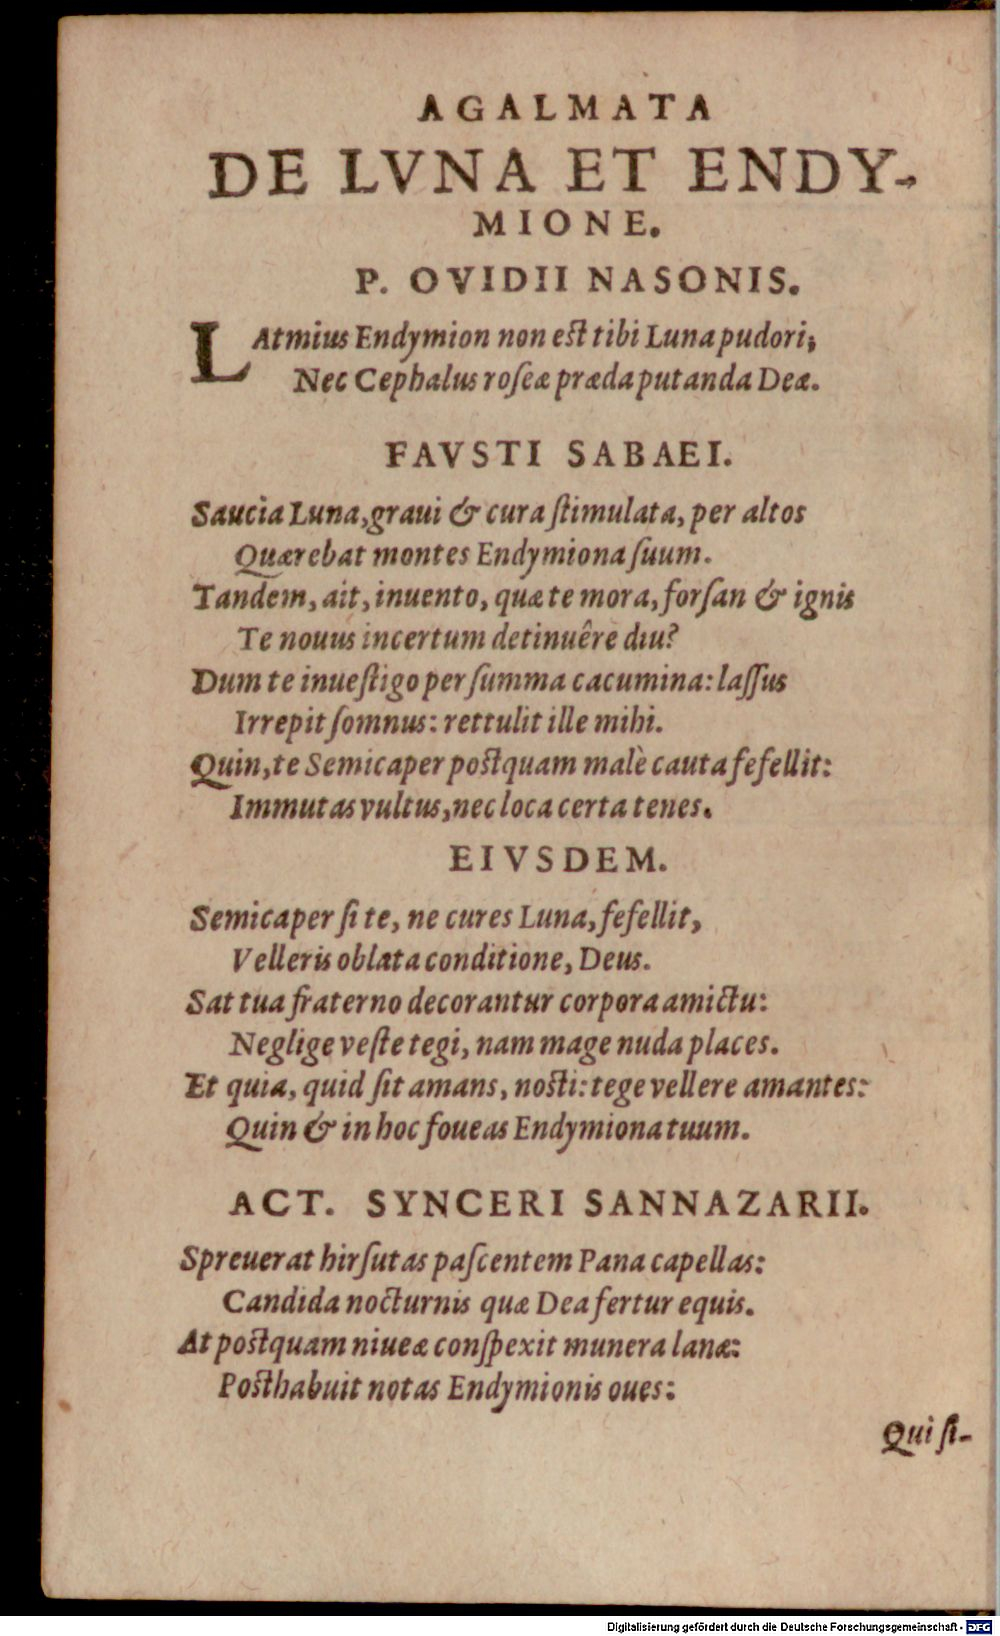 AGALMATA
DE LVNA ET ENDY-
MIONE.
P. OVIDII NASONIS.
LAtmius Endymion non est tibi Luna pudori;
Nec Cephalus roſeæ præda putanda Deæ.
FAVSTI SABAEI.
Saucia Luna, graui & cura ſtimulata, per altos
Quærebat montes Endymiona ſuum.
Tandem, ait, inuento, quæ te mora, forſan & ignis
Te nouus incertum detinuêre diu?
Dum te inueſtigo per ſumma cacumina: laſſus
Irrepit ſomnus: rettulit ille mihi.
Quin, te Semicaper postquam malè cauta fefellit:
Immutas vultus, nec loca certa tenes.
EIVSDEM.
Semicaper ſi te, ne cures Luna, fefellit,
Velleris oblata conditione, Deus.
Sat tua fraterno decorantur corpora amictu:
Neglige veſte tegi, nam mage nuda places.
Et quia, quid ſit amans, nosti: tege vellere amantes:
Quin & in hoc foueas Endymiona tuum.
ACT. SYNCERI SANNAZARII.
Spreuerat hirſutas paſcentem Pana capellas:
Candida nocturnis quæ Dea fertur equis.
At postquam niueæ conſpexit munera lanæ:
Posthabuit notas Endymionis oues:
Qui ſi-
Digitalisierung gefördert durch die Deutsche Forschungsgemeinschaft - DFG